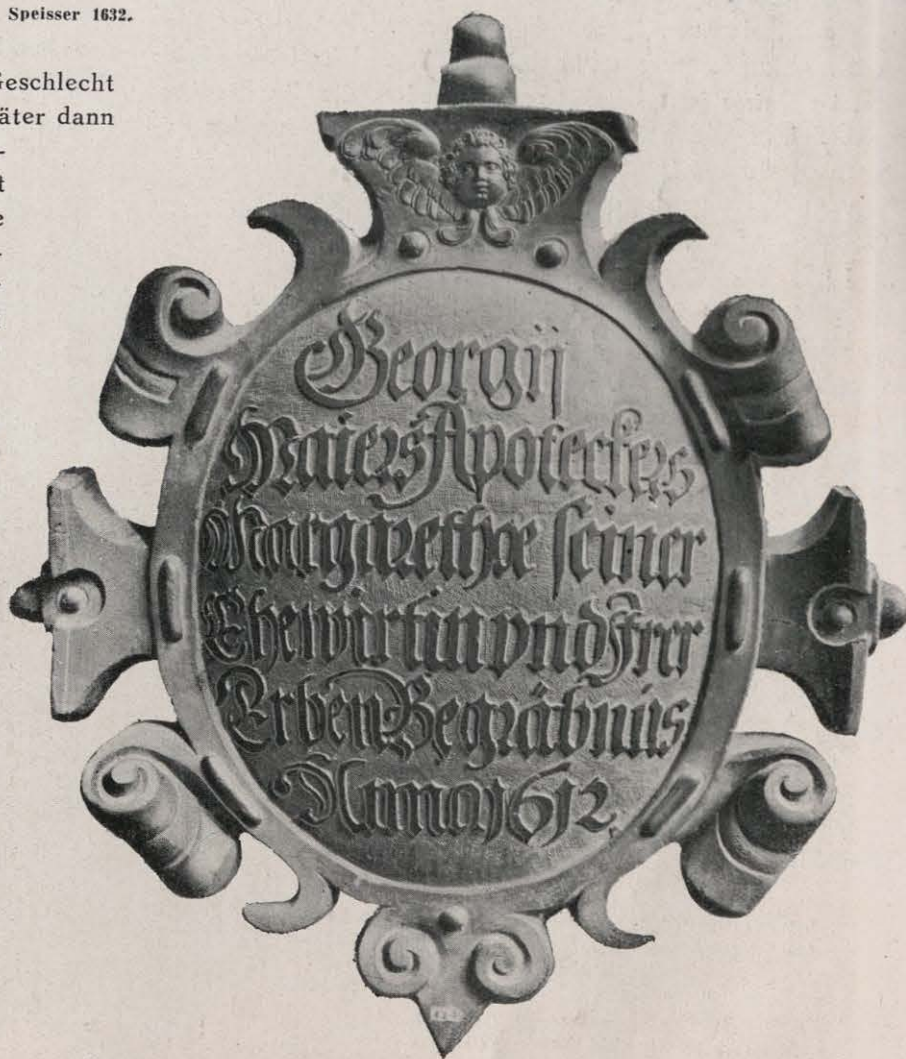 Speisser 1632.
Geschlecht
äter dann
-
t
e
Georgij
Maiers Apoteckers
Margarethæ seiner
Ehewirtin vnd Irer
Erben Begräbnus
Anno 1612